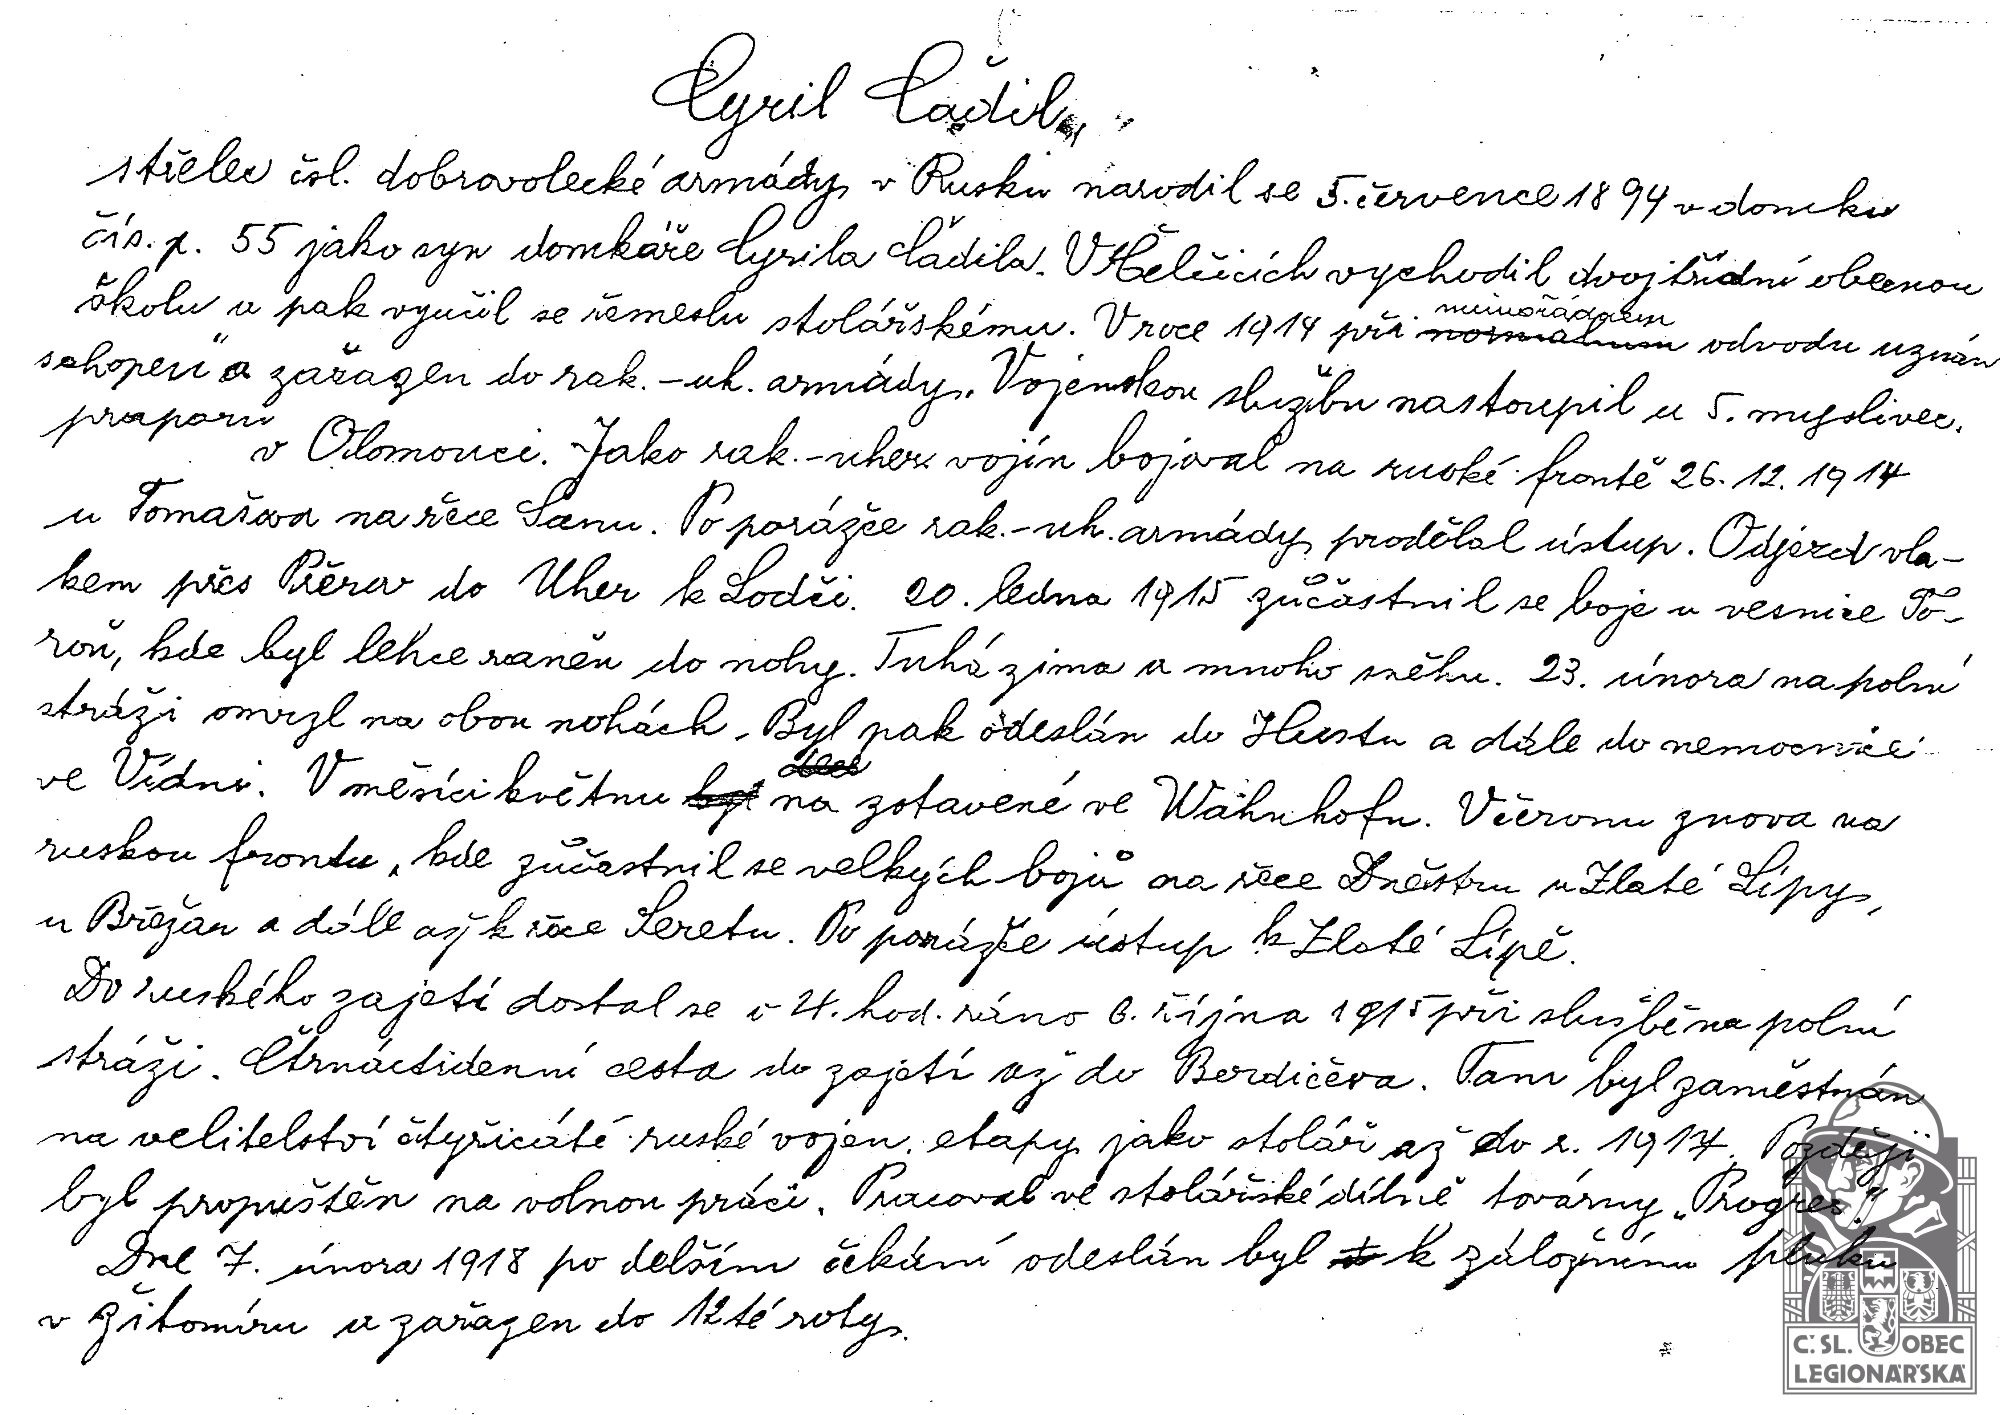 Cyril Čadil
střelec čsl. dobrovolecké armády v Rusku narodil se 5. července 1894 v domku
čís. p. 55 jako syn domkáře Cyrila Čadila. V Želčicích vychodil dvojtřídní obecnou
školu a pak vyučil se řemeslu stolářskému. V roce 1914 při mimořádném odvodu uznán
schopen" a zařazen do rak.-uh. armády. Vojenskou službu nastoupil u 5. myslivec.
praporu
v Olomouci. Jako rak.-uher. vojín bojoval na ruské frontě 26. 12. 1914
u Tomašova na řece Sanu. Po porážce rak.-uh. armády prodělal ústup. Odjezd vla-
kem přes Přerov do Uher k Lodči. 20. ledna 1915 zúčastnil se boje u vesnice To-
roň, kde byl lehce raněn do nohy. Tuhá zima a mnoho sněhu. 23. února na polní
stráži omrzl na obou nohách. Byl pak odeslán do Hustu a dále do nemocnice
ve Vídni. V měsíci květnu na zotavené ve Wáhnhofu. V červnu znova na
ruskou frontu, kde zúčastnil se velkých bojů na řece Dněstru u Zlaté Lípy,
u Břežan a dále až k řece Seretu. Po porážce ústup k Zlaté Lípě.
Do ruského zajetí dostal se o 4. hod. ráno 6. října 1915 při službě na polní
stráži. Čtrnáctidenní cesta do zajetí až do Berdičeva. Tam byl zaměstnán
na velitelství čtyřicáté ruské vojen. etapy jako stolář až do r. 1917. Později
byl propuštěn na volnou práci. Pracoval ve stolářské dílně továrny „Progres."
Dne 7. února 1918 po delším čekání odeslán byl k záložnímu pluku
v Žitomíru a zařazen do 12té roty.
Č. SL. OBEC
LEGIONÁŘSKÁ